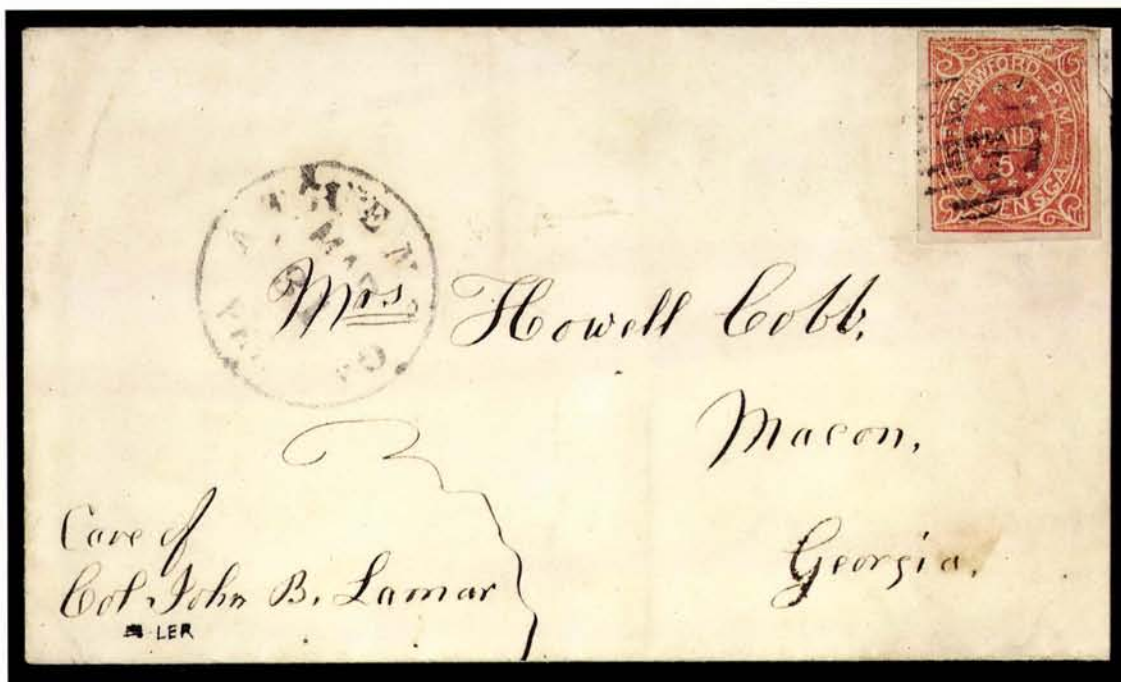 CRAWFORD. P. M.
PAID
5
ENS GA.
ATHENS
MAR
Mrs. Howell Cobb,
Macon,
Georgia.
Care of
Col. John B. Lamar
LER